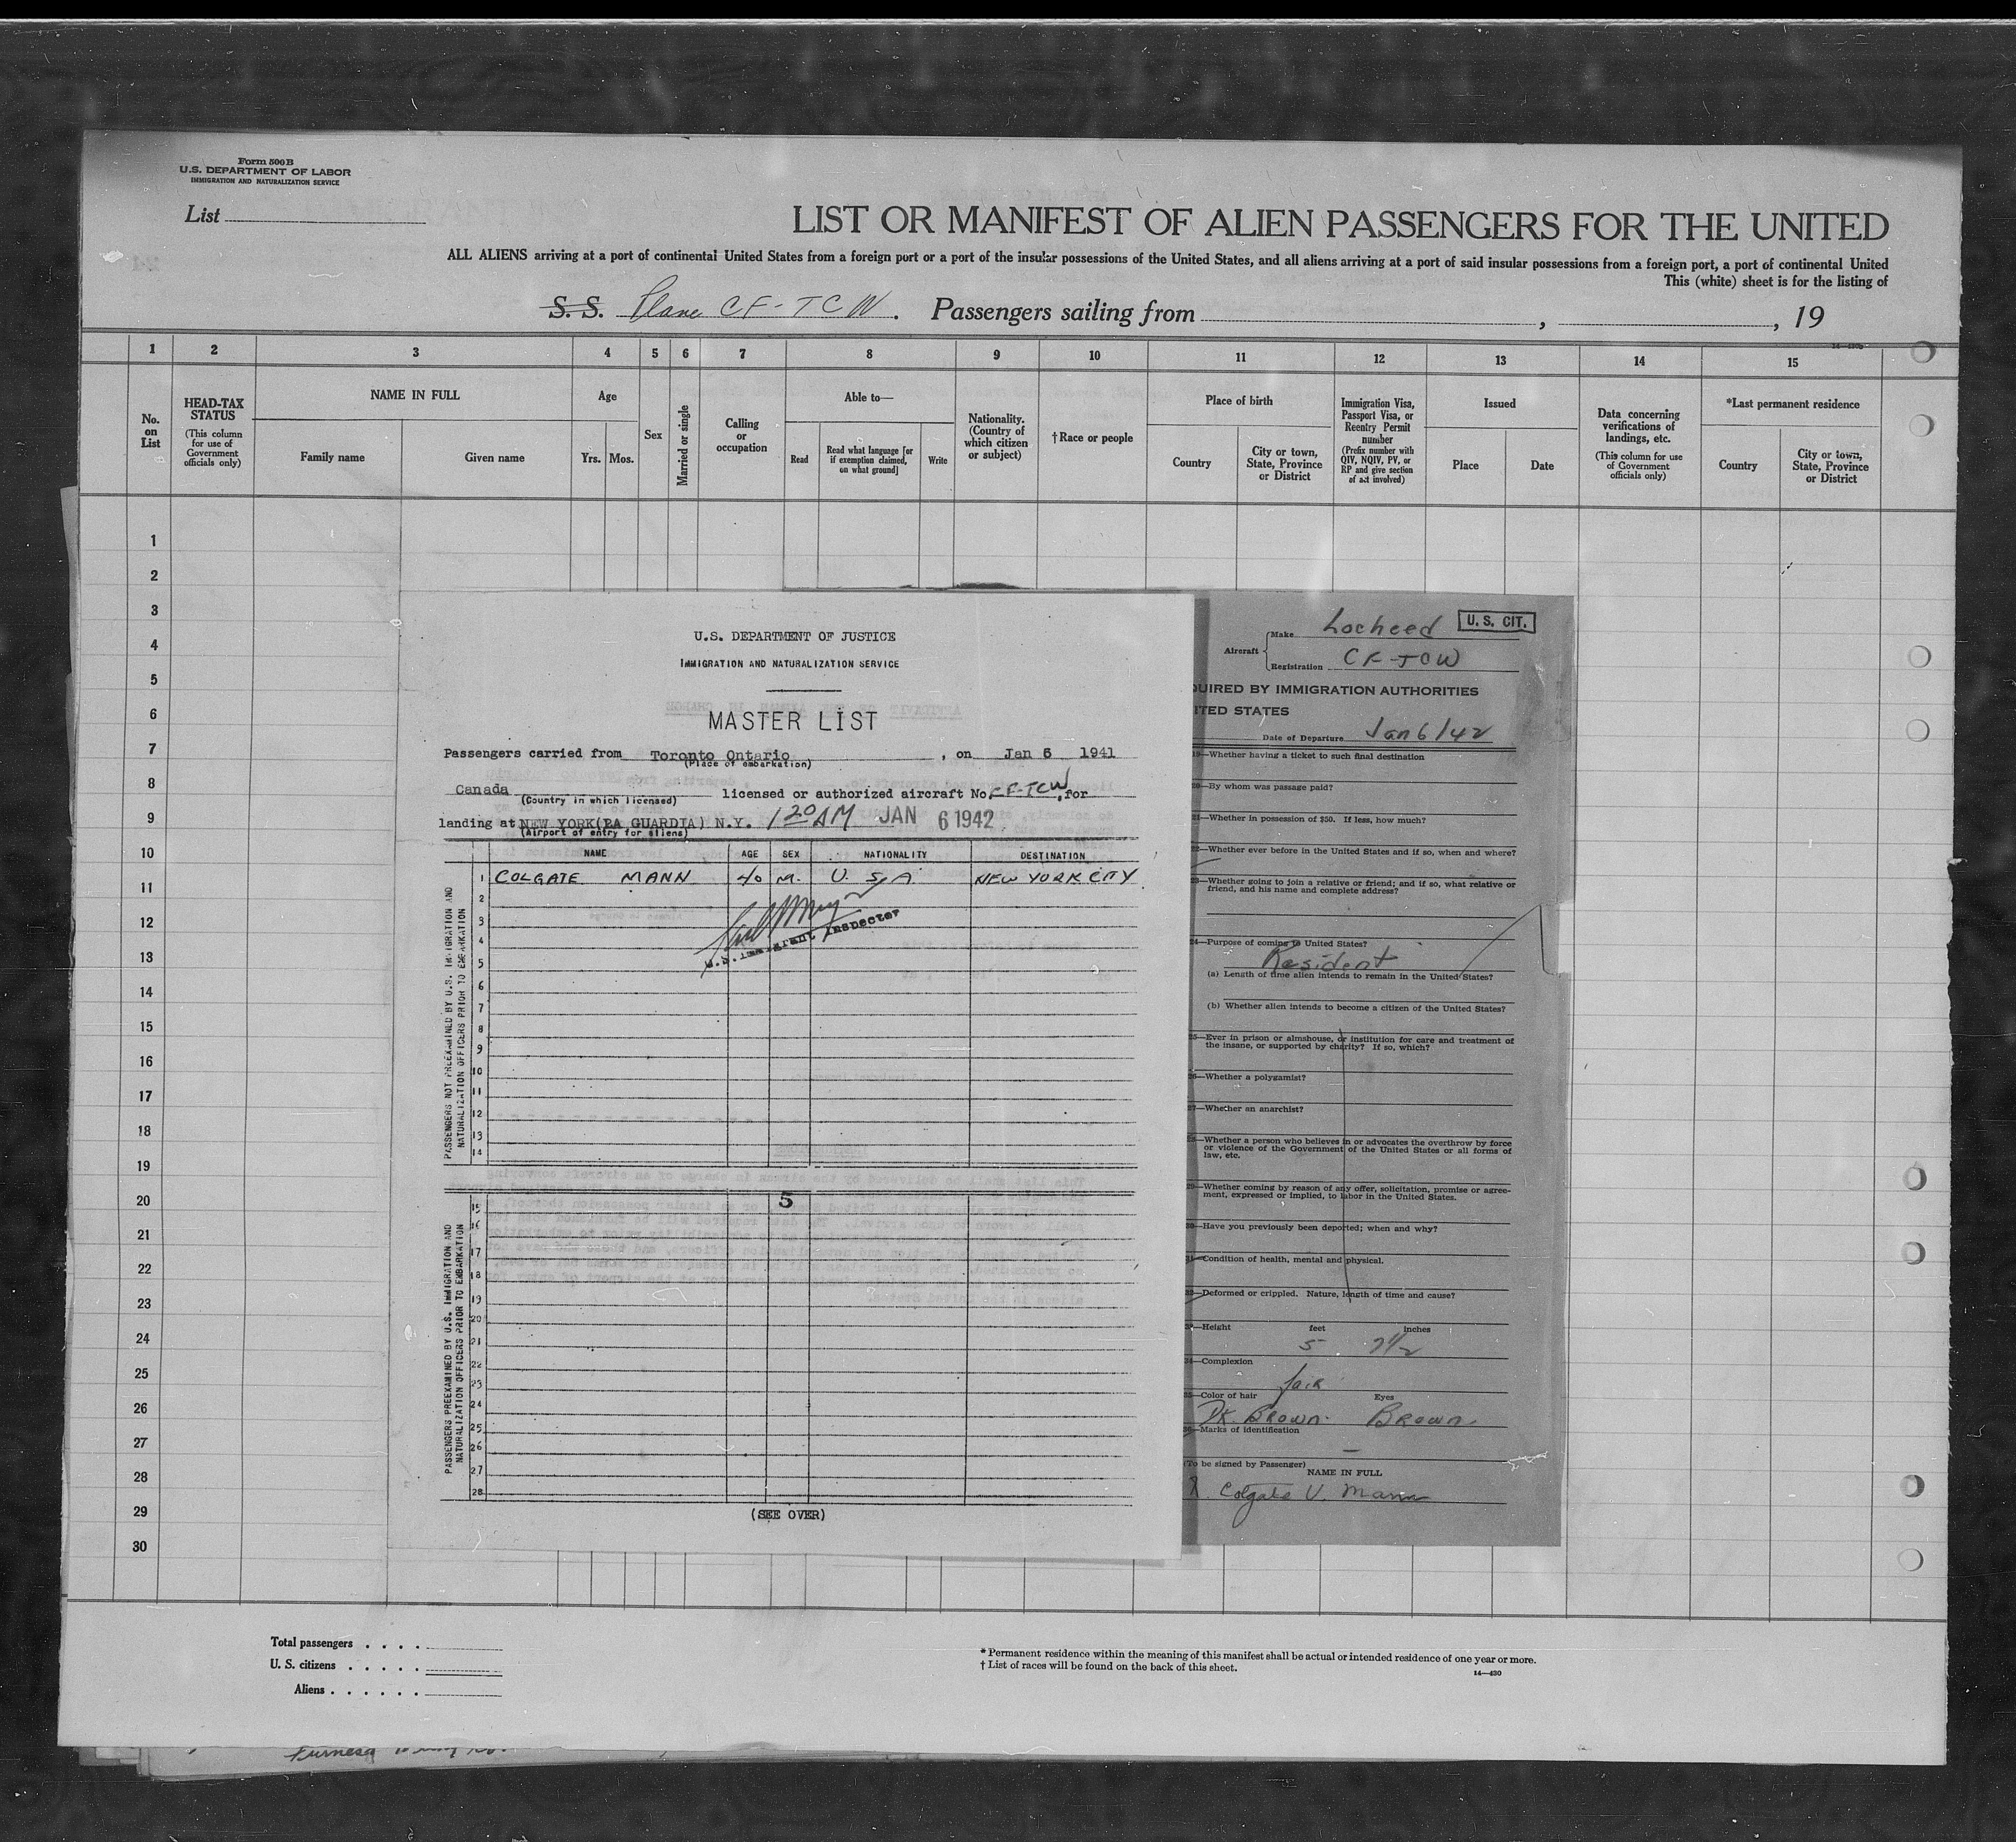 Form 500B
U.S. DEPARTMENT OF LABOR
IMMIGRATION AND NATURALIZATION SERVICE
List
LIST OR MANIFEST OF ALIEN PASSENGERS FOR THE UNITED
ALL ALIENS arriving at a port of continental United States from a foreign port or a port of the insular possessions of the United States, and all aliens arriving at a port of said insular possessions from a foreign port, a port of continental United
This (white) sheet is for the listing of
S. S. Plane CF-TCW. Passengers sailing from , , 19
1 2 3 4 5 6 7 8 9 10 11 12 13 14 15
No. on List
HEAD-TAX STATUS
(This column for use of Government officials only)
NAME IN FULL
Family name
Given name
Age
Yrs. Mos.
Sex
Married or single
Calling or occupation
Able to—
Read
Read what language [or if exemption claimed, on what ground]
Write
Nationality. (Country of which citizen or subject)
†Race or people
Place of birth
Country
City or town, State, Province or District
Immigration Visa, Passport Visa, or Reentry Permit number
(Prefix number with QIV, NQIV, PV, or RP and give section of act involved)
Issued
Place
Date
Data concerning verifications of landings, etc.
(This column for use of Government officials only)
*Last permanent residence
Country
City or town, State, Province or District
1
2
3
4
5
6
7
8
9
10
11
12
13
14
15
16
17
18
19
20
21
22
23
24
25
26
27
28
29
30
U.S. DEPARTMENT OF JUSTICE
IMMIGRATION AND NATURALIZATION SERVICE
MASTER LIST
Passengers carried from Toronto Ontario, on Jan 6 1941
(Place of embarkation)
Canada licensed or authorized aircraft No. CF-TCW, for
(Country in which licensed)
landing at NEW YORK(LA GUARDIA) N.Y. 1 20 AM JAN 6 1942
(Airport of entry for aliens)
NAME AGE SEX NATIONALITY DESTINATION
1 COLGATE MANN 40 M. U. S. A. NEW YORK CITY
2
3
U.S. Immigrant Inspector
4
5
6
7
8
9
10
11
12
13
14
PASSENGERS NOT PREEXAMINED BY U.S. IMMIGRATION AND
NATURALIZATION OFFICERS PRIOR TO EMBARKATION
5
15
16
17
18
19
20
21
22
23
24
25
26
27
28
PASSENGERS PREEXAMINED BY U.S. IMMIGRATION AND
NATURALIZATION OFFICERS PRIOR TO EMBARKATION
(SEE OVER)
Aircraft
Make Locheed
U. S. CIT.
Registration CF-TCW
QUIRED BY IMMIGRATION AUTHORITIES
ITED STATES
Date of Departure Jan 6/42
—Whether having a ticket to such final destination
—By whom was passage paid?
—Whether in possession of $50. If less, how much?
—Whether ever before in the United States and if so, when and where?
—Whether going to join a relative or friend; and if so, what relative or
friend, and his name and complete address?
—Purpose of coming to United States?
Resident
(a) Length of time alien intends to remain in the United States?
(b) Whether alien intends to become a citizen of the United States?
—Ever in prison or almshouse, or institution for care and treatment of
the insane, or supported by charity? If so, which?
—Whether a polygamist?
—Whether an anarchist?
—Whether a person who believes in or advocates the overthrow by force
or violence of the Government of the United States or all forms of
law, etc.
—Whether coming by reason of any offer, solicitation, promise or agree-
ment, expressed or implied, to labor in the United States.
—Have you previously been deported; when and why?
—Condition of health, mental and physical.
—Deformed or crippled. Nature, length of time and cause?
—Height feet inches
5 7 1/2
—Complexion
fair
—Color of hair Eyes
DK. BROWN. BROWN.
—Marks of identification
—
(To be signed by Passenger)
NAME IN FULL
X. Colgate V. Mann
Total passengers
U. S. citizens
Aliens
* Permanent residence within the meaning of this manifest shall be actual or intended residence of one year or more.
† List of races will be found on the back of this sheet.
14—430
Furness